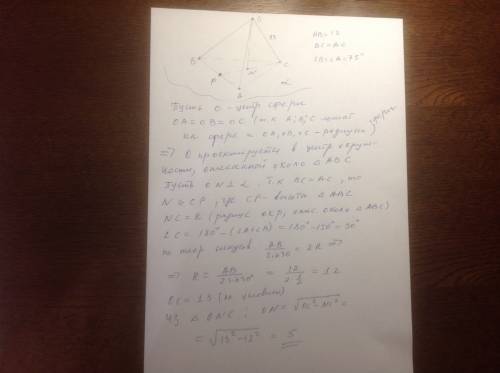 O
13
AB=12
BC=AC
∠B=∠A=75°
B
C
P
N
α
A
Пусть O - центр сферы
OA=OB=OC (т.к A; B; C лежат
на сфере и OA, OB, OC - радиусы) сферы
=> O проектируется в центр окруж-
ности, описанной около △ABC
Пусть ON⊥α. Т.к BC=AC, то
N∈CP, где CP - высота △ABC
NC=R (радиус окр, опис. около △ABC)
∠C=180°-(∠A+∠B)=180°-150°=30°
по теор синусов AB/sin30 = 2R =>
=> R = AB/2sin30° = 12/2·1/2 = 12
OC=13 (по условию)
Из △ONC: ON=√OC²-NC² =
= √13²-12² = 5